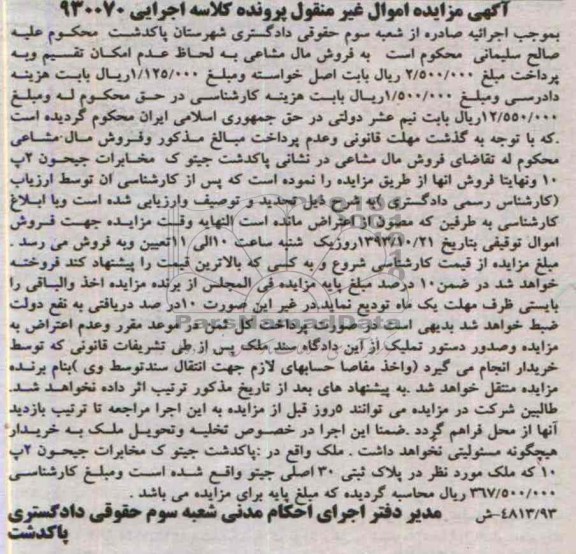 آگهی مزایده اموال غیر منقول پرونده کلاسه اجرایی ۹۳۰۰۷۰
بموجب اجرائیه صادره از شعبه سوم حقوقی دادگستری شهرستان پاکدشت محکوم علیه
صالح سلیمانی محکوم است به فروش مال مشاعی به لحاظ عدم امکان تقسیم وبه
پرداخت مبلغ ۲/۵۰۰/۰۰۰ ریال بابت اصل خواسته ومبلغ ۱/۱۲۵/۰۰۰ریال بابت هزینه
دادرسی ومبلغ ۱/۵۰۰/۰۰۰ریال بابت هزینه کارشناسی در حق محکوم له ومبلغ
۱۲/۵۵۰/۰۰۰ریال بابت نیم عشر دولتی در حق جمهوری اسلامی ایران محکوم گردیده است
.که با توجه به گذشت مهلت قانونی وعدم پرداخت مبالغ مذکور وفروش مال مشاعی
محکوم له تقاضای فروش مال مشاعی در نشانی پاکدشت جیتو ک مخابرات جیحون ۲پ
۱۰ ونهایتا فروش انها از طریق مزایده را نموده است که پس از کارشناسی ان توسط ارزیاب
(کارشناس رسمی دادگستری )به شرح ذیل تحدید و توصیف وارزیابی شده است وبا ابلاغ
کارشناسی به طرفین که مصون از اعتراض مانده است النهایه وقت مزایده جهت فروش
اموال توقیفی بتاریخ ۱۳۹۳/۱۰/۲۱روزیک شنبه ساعت ۱۰الی ۱۱تعیین وبه فروش می رسد .
مبلغ مزایده از قیمت کارشناسی شروع و به کسی که بالاترین قیمت را پیشنهاد کند فروخته
خواهد شد در ضمن۱۰ درصد مبلغ پایه مزایده فی المجلس از برنده مزایده اخذ والباقی را
بایستی ظرف مهلت یک ماه تودیع نماید.در غیر این صورت ۱۰در صد دریافتی به نفع دولت
ضبط خواهد شد بدیهی است در صورت پرداخت کل ثمن در موعد مقرر وعدم اعتراض به
مزایده وصدور دستور تملیک از این دادگاه سند ملک پس از طی تشریفات قانونی که توسط
خریدار انجام می گیرد (واخذ مفاصا حسابهای لازم جهت انتقال سندتوسط وی )بنام برنده
مزایده منتقل خواهد شد .به پیشنهاد های بعد از تاریخ مذکور ترتیب اثر داده نخواهد شد.
طالبین شرکت در مزایده می توانند ۵روز قبل از مزایده به این اجرا مراجعه تا ترتیب بازدید
آنها از محل فراهم گردد .ضمنا این اجرا در خصوص تخلیه وتحویل ملک به خریدار
هیچگونه مسئولیتی نخواهد داشت . ملک واقع در :پاکدشت جیتو ک مخابرات جیحون ۲پ
۱۰ که ملک مورد نظر در پلاک ثبتی ۳۰ اصلی جیتو واقع شده است ومبلغ کارشناسی
۳۶۷/۵۰۰/۰۰۰ ریال محاسبه گردیده که مبلغ پایه برای مزایده می باشد .
۴۸۱۳/۹۳-ش مدیر دفتر اجرای احکام مدنی شعبه سوم حقوقی دادگستری
پاکدشت
ParsNamadData